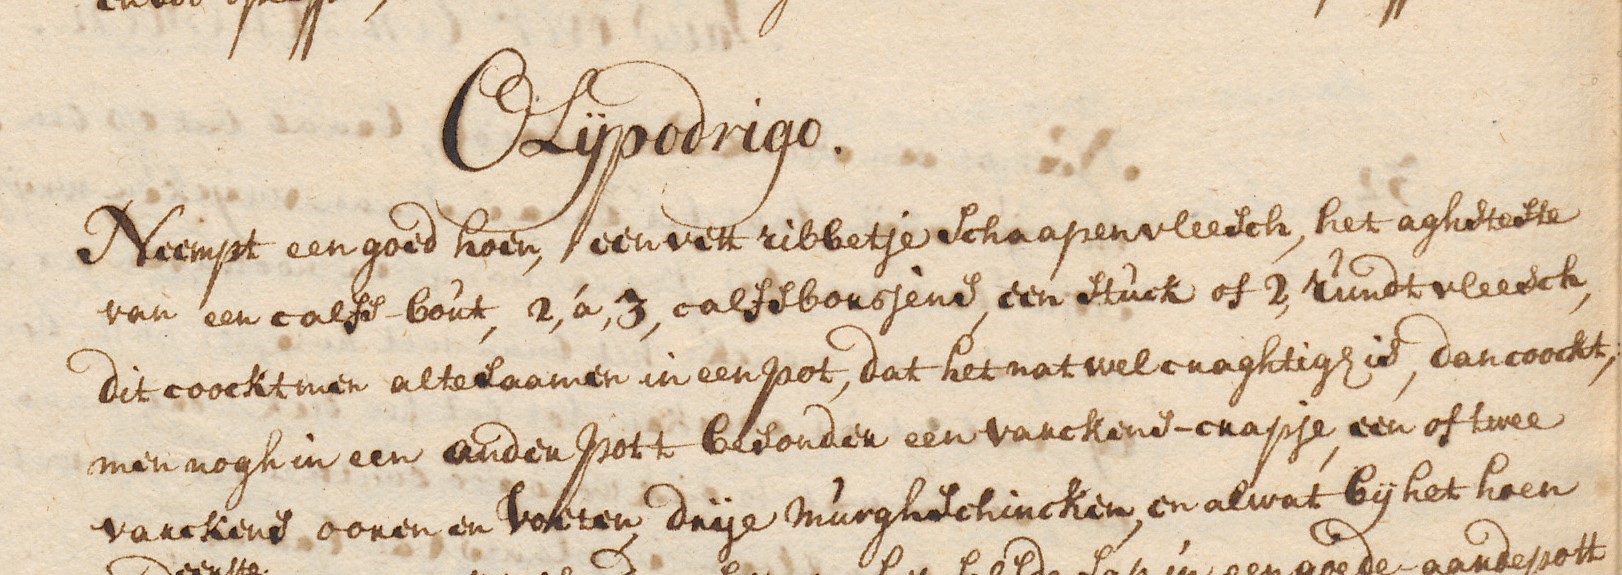 Olijpodrigo.
Neempt een goed hoen, een vett ribbetje schaapenvleesch, het aghsteste
van een calfs-bout, 2, á, 3, calfsborsjens, een stuck of 2, rundtvleesch,
dit coockt men altesaamen in een pot, dat het nat wel craghtigh is, dan coockt,
men nogh in een ander pott besonder een varckens-crapje, een of twee
varckens ooren en voeten, drije murghschincken, en alwat bij het hoen
in een goede-aardepott